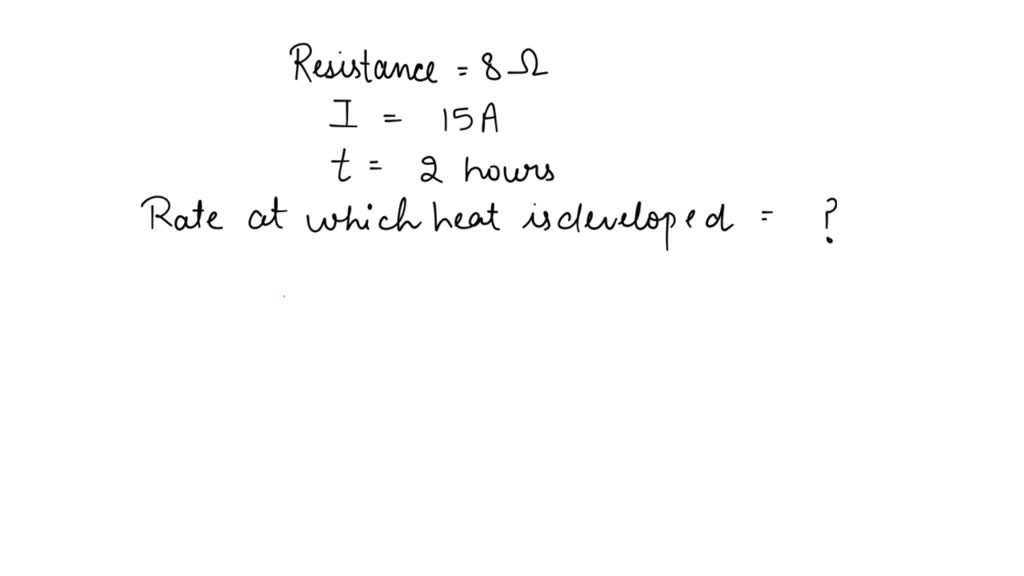 Resistance = 8 Ω
I = 15A
t = 2 hours
Rate at which heat is developed = ?